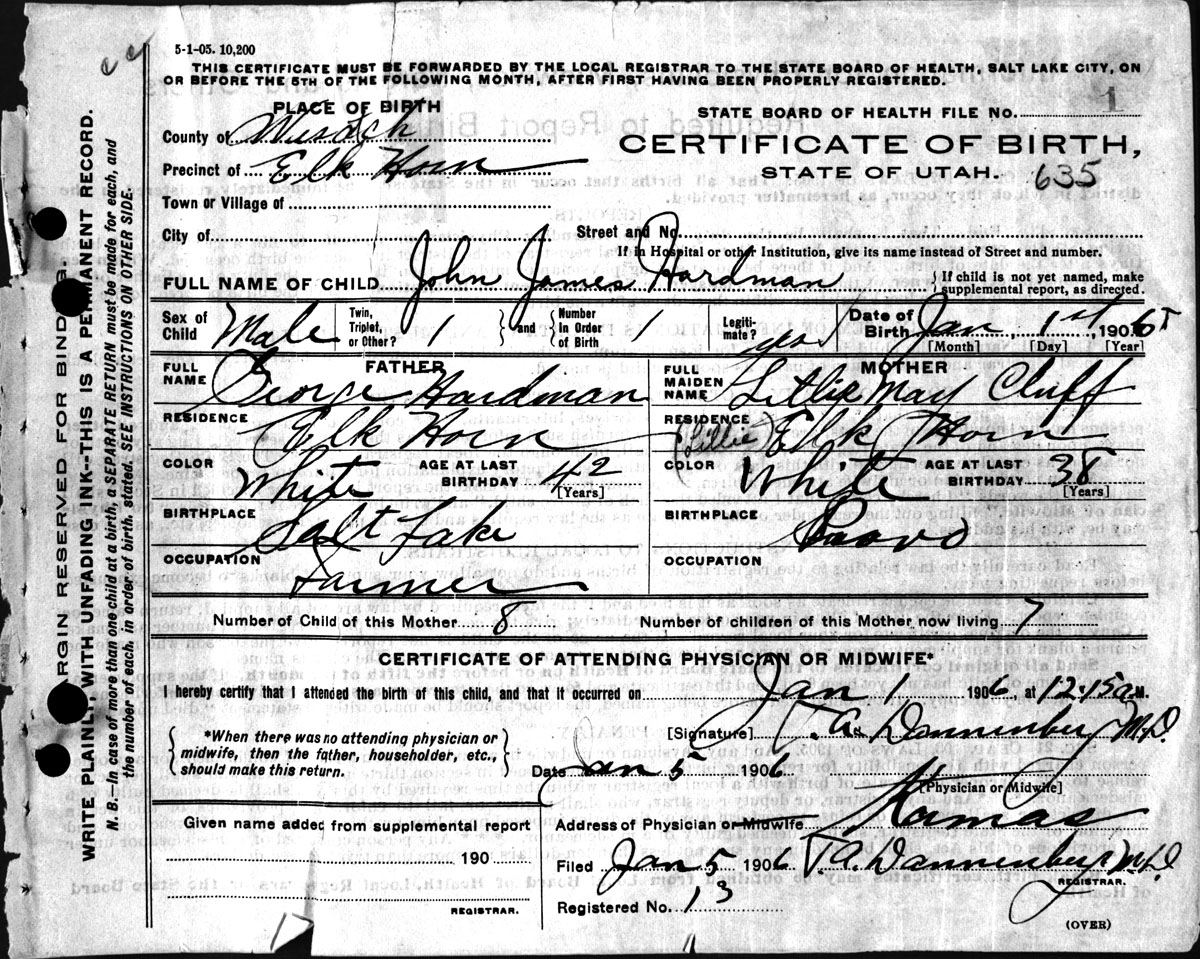 5-1-05. 10,200
THIS CERTIFICATE MUST BE FORWARDED BY THE LOCAL REGISTRAR TO THE STATE BOARD OF HEALTH, SALT LAKE CITY, ON
OR BEFORE THE 5TH OF THE FOLLOWING MONTH, AFTER FIRST HAVING BEEN PROPERLY REGISTERED.
PLACE OF BIRTH
STATE BOARD OF HEALTH FILE NO. 1
County of Wasatch
CERTIFICATE OF BIRTH,
Precinct of Elk Horn
STATE OF UTAH. 635
Town or Village of
City of Street and No.
If in Hospital or other Institution, give its name instead of Street and number.
FULL NAME OF CHILD John James Hardman } If child is not yet named, make supplemental report, as directed.
Sex of Child Male Twin, Triplet, or Other? 1 } and { Number in Order of Birth 1 Legitimate? yes Date of Birth Jan 1st, 1906
[Month] [Day] [Year]
FATHER MOTHER
FULL NAME George Hardman FULL MAIDEN NAME Litlie May Cluff
RESIDENCE Elk Horn RESIDENCE (Lillie) Elk Horn
COLOR White AGE AT LAST BIRTHDAY 42 [Years] COLOR White AGE AT LAST BIRTHDAY 38 [Years]
BIRTHPLACE Salt Lake BIRTHPLACE Proovo
OCCUPATION Farmer OCCUPATION
Number of Child of this Mother 8 Number of children of this Mother now living 7
CERTIFICATE OF ATTENDING PHYSICIAN OR MIDWIFE*
I hereby certify that I attended the birth of this child, and that it occurred on Jan 1 1906, at 12.15 a M.
[Signature] T. A. Dannenberg M.D.
{ *When there was no attending physician or midwife, then the father, householder, etc., should make this return. }
Date Jan 5 1906
[Physician or Midwife]
Given name added from supplemental report
Address of Physician or Midwife Kamas
190
Filed Jan 5 1906 T. A. Dannenberg M.D.
REGISTRAR.
REGISTRAR.
Registered No. 13
(OVER)
MARGIN RESERVED FOR BINDING.
WRITE PLAINLY, WITH UNFADING INK--THIS IS A PERMANENT RECORD.
N. B.—In case of more than one child at a birth, a SEPARATE RETURN must be made for each, and
the number of each, in order of birth, stated. SEE INSTRUCTIONS ON OTHER SIDE.